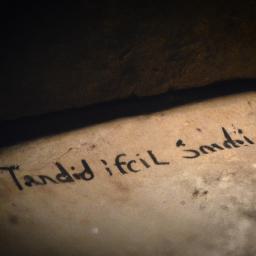 Tandid ifciL Smdi